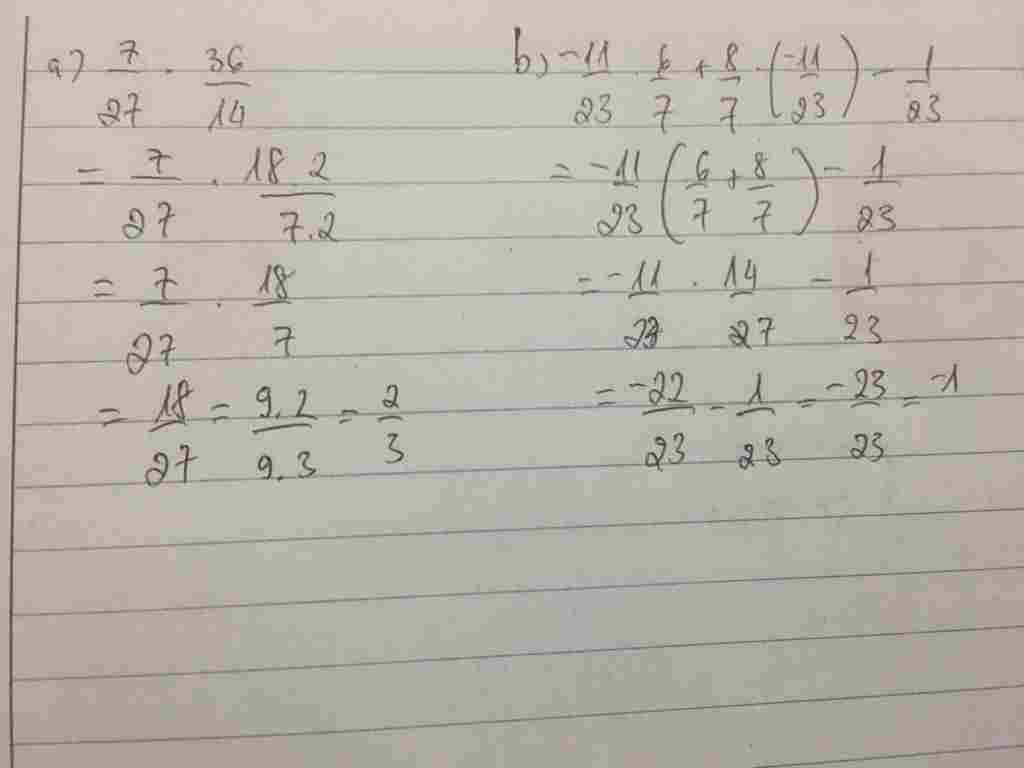 a) 7/27 . 36/14
= 7/27 . 18.2/7.2
= 7/27 . 18/7
= 18/27 = 9.2/9.3 = 2/3
b) -11/23 . 6/7 + 8/7 . (-11/23) - 1/23
= -11/23 (6/7 + 8/7) - 1/23
= -11/23 . 14/27 - 1/23
= -22/23 - 1/23 = -23/23 = -1